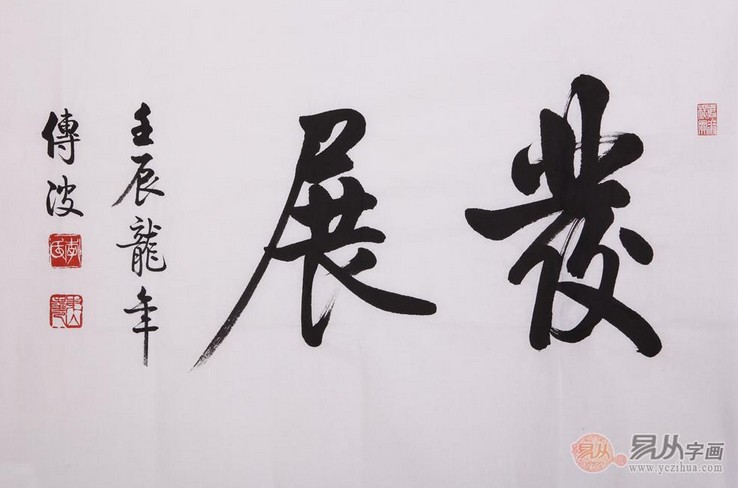 發展
壬辰龍年
傳波
易从
易从字画
www.yczihua.com